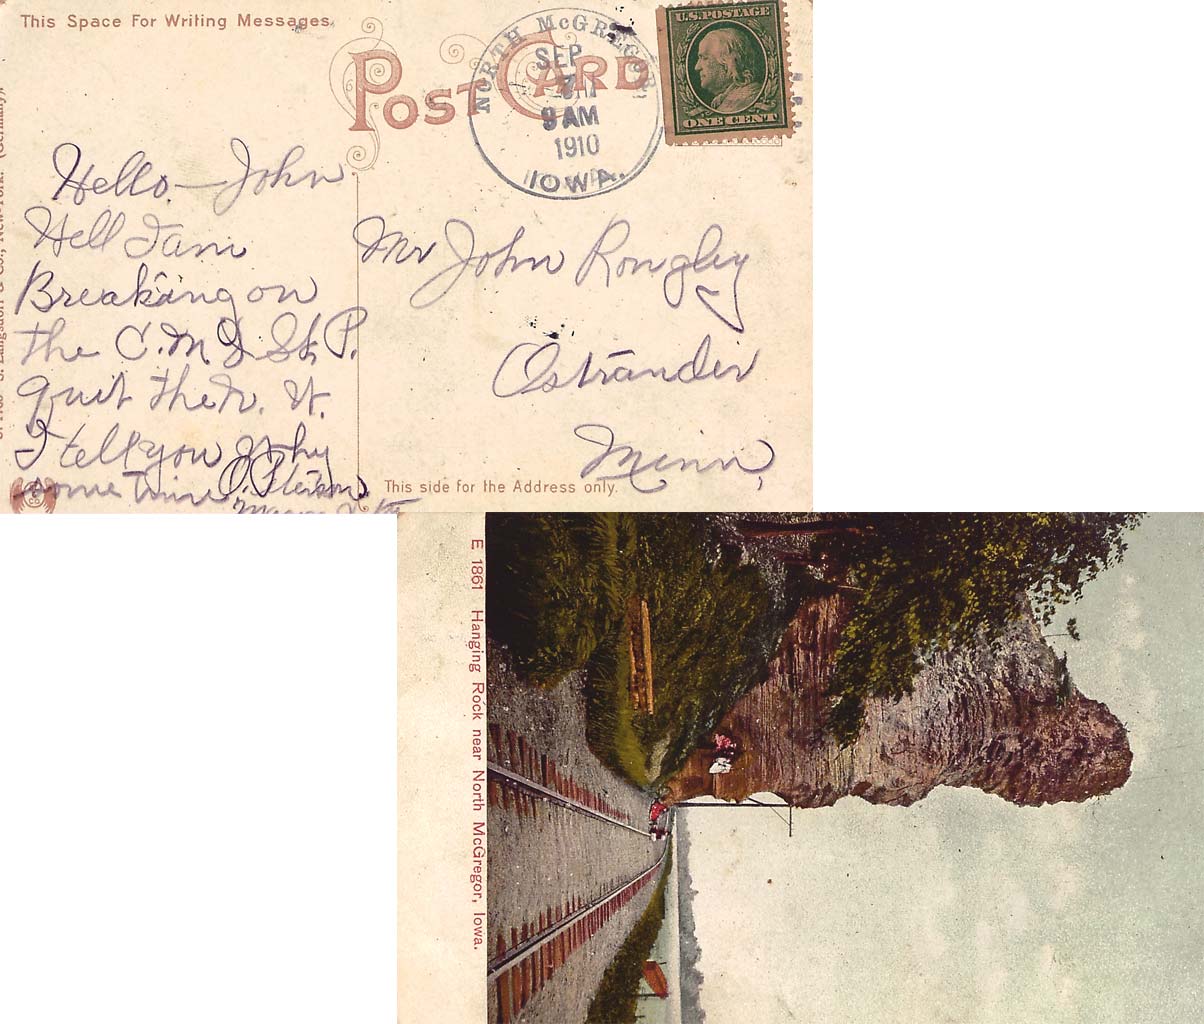 This Space For Writing Messages.
POST CARD
NORTH McGREGOR
SEP
7
9 AM
1910
IOWA.
U.S. POSTAGE
ONE CENT
Hello - John
Hell I am
Breaking on
the C. M & St. P.
quit the
I tell you why
some time
Mr John Rongley
Ostrander
Minn,
This side for the Address only.
Langsdorf & Co., New-York. (Germany).
E 1861 Hanging Rock near North McGregor, Iowa.